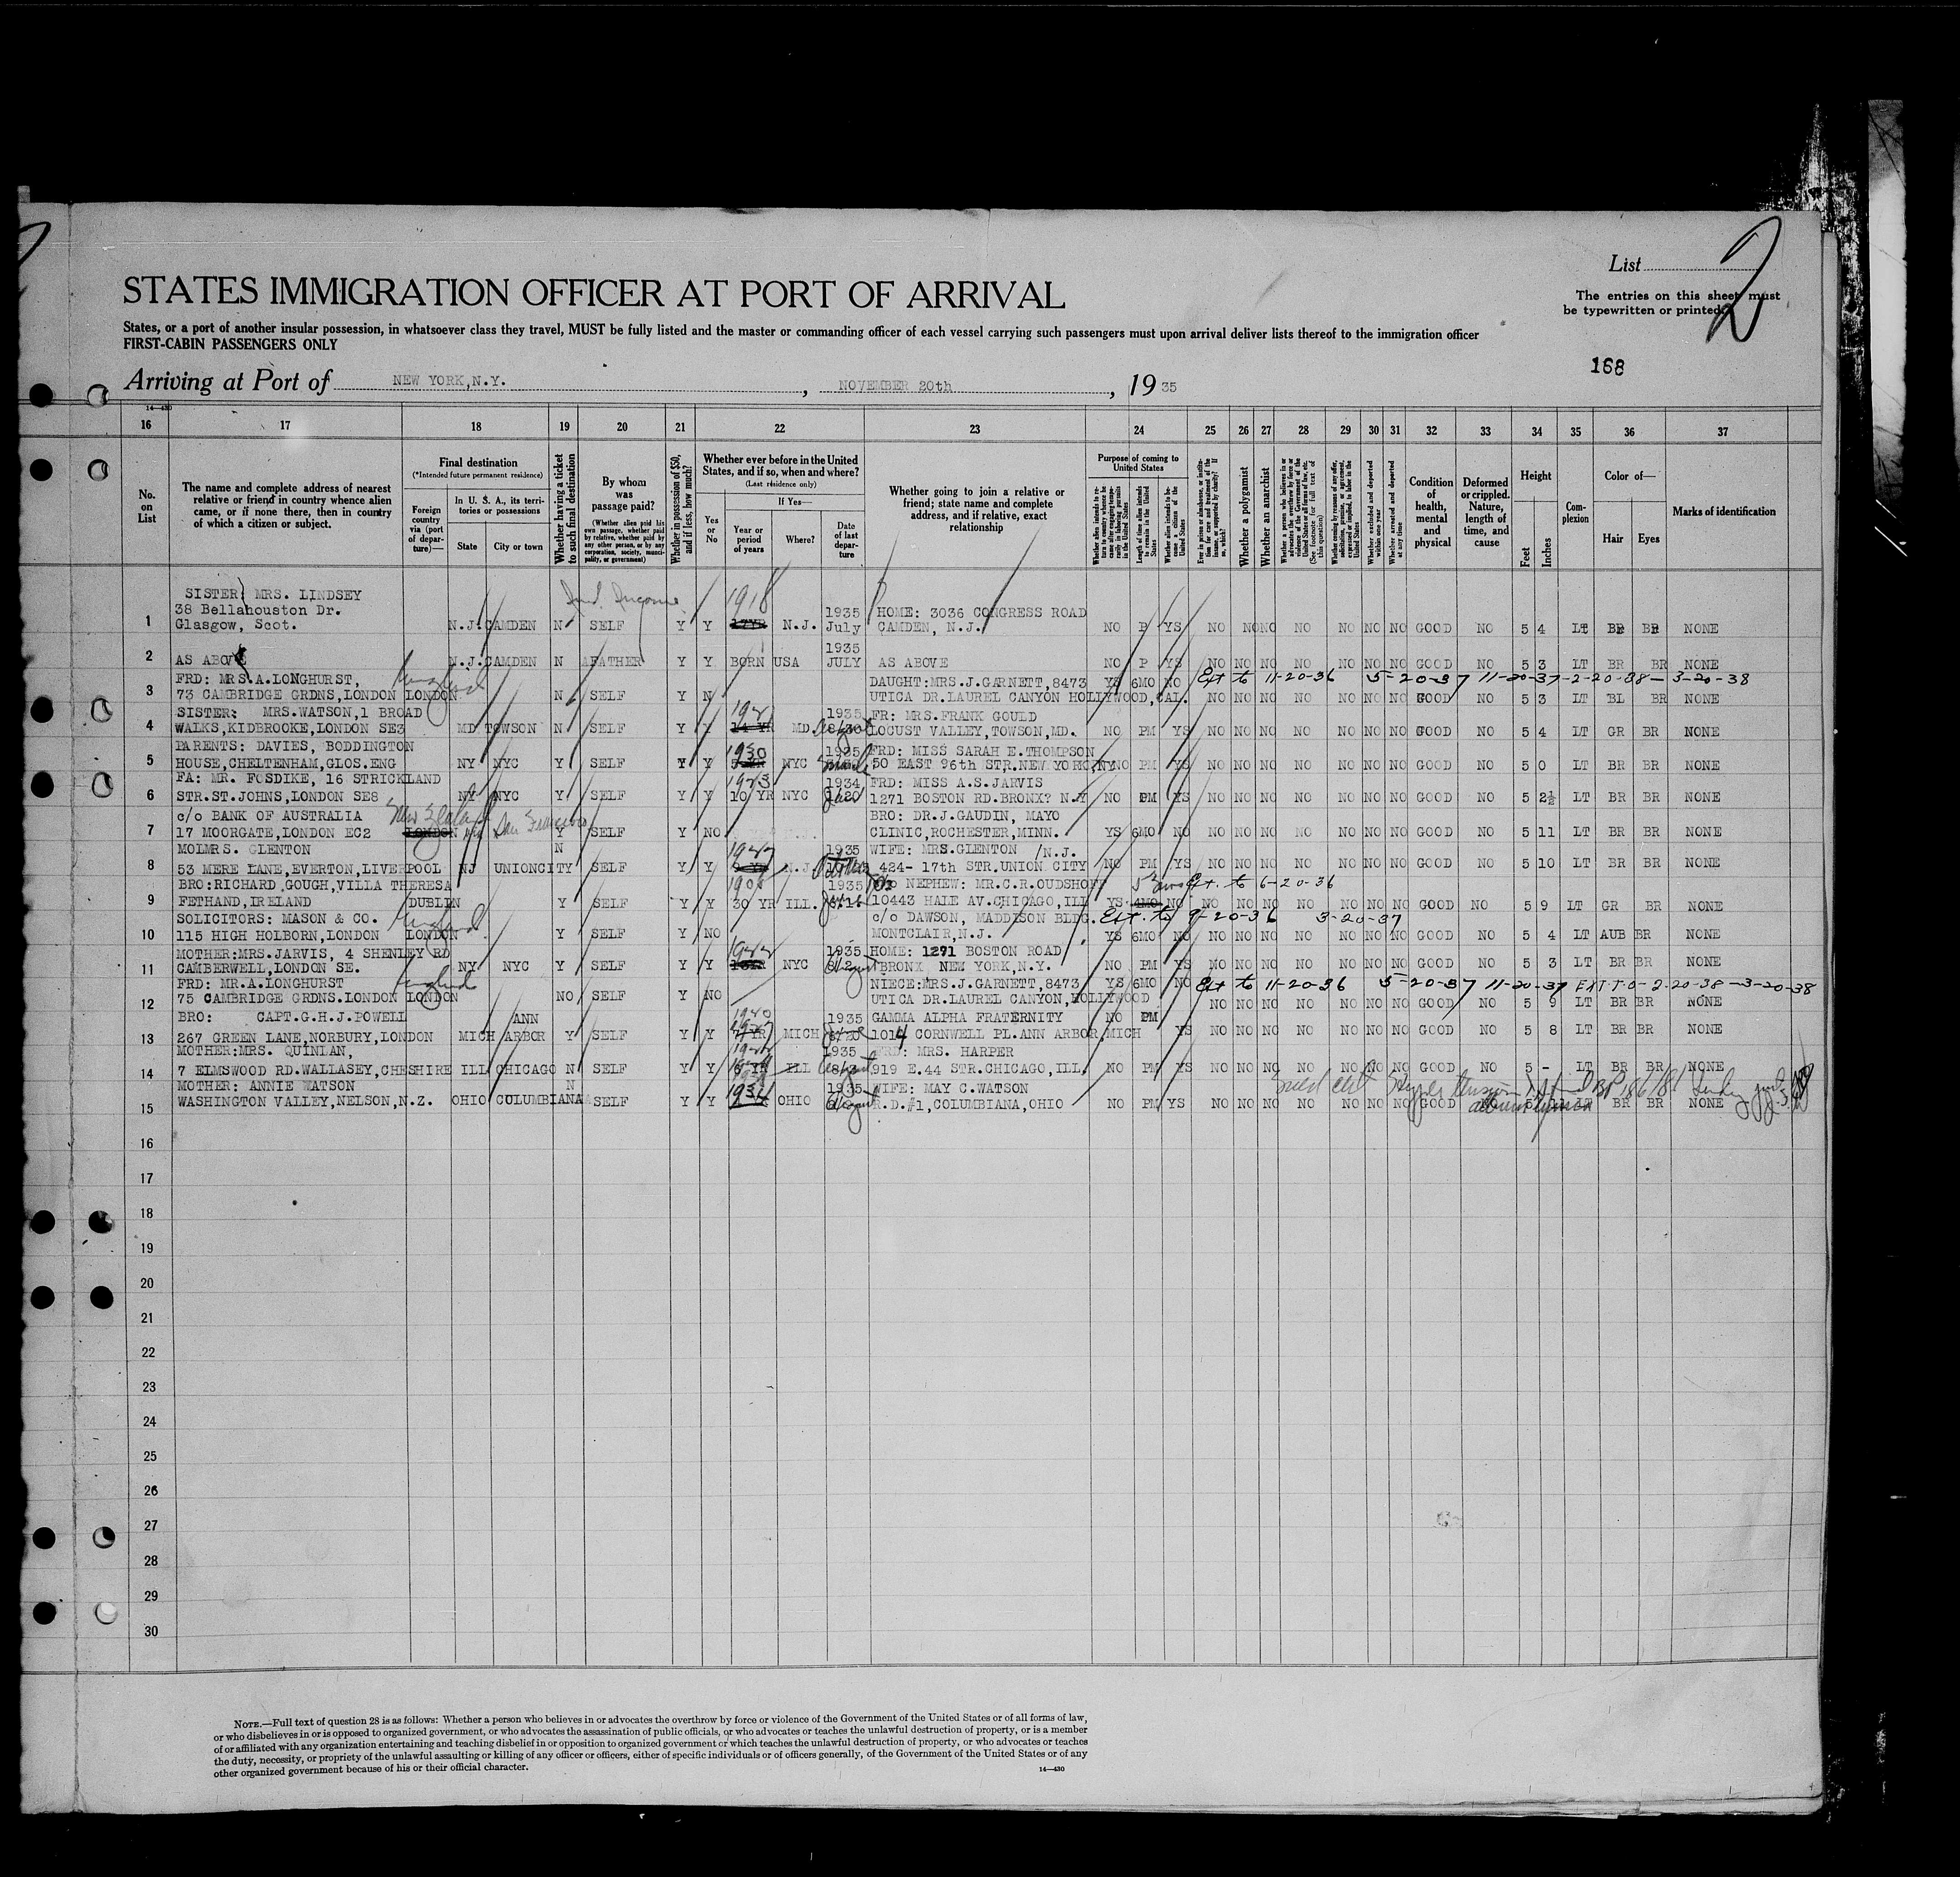 List 2
STATES IMMIGRATION OFFICER AT PORT OF ARRIVAL
The entries on this sheet must
be typewritten or printed.
States, or a port of another insular possession, in whatsoever class they travel, MUST be fully listed and the master or commanding officer of each vessel carrying such passengers must upon arrival deliver lists thereof to the immigration officer
FIRST-CABIN PASSENGERS ONLY
168
Arriving at Port of NEW YORK,N.Y. , NOVEMBER 20th , 19 35
14—430
16 17 18 19 20 21 22 23 24 25 26 27 28 29 30 31 32 33 34 35 36 37
No. on List
The name and complete address of nearest relative or friend in country whence alien came, or if none there, then in country of which a citizen or subject.
Final destination
(*Intended future permanent residence)
Foreign country via (port of departure)—
In U. S. A., its territories or possessions
State
City or town
Whether having a ticket to such final destination
By whom was passage paid?
(Whether alien paid his own passage, whether paid by relative, whether paid by any other person, or by any corporation, society, municipality, or government)
Whether in possession of $50, and if less, how much?
Whether ever before in the United States, and if so, when and where?
(Last residence only)
Yes or No
If Yes—
Year or period of years
Where?
Date of last departure
Whether going to join a relative or friend; state name and complete address, and if relative, exact relationship
Purpose of coming to United States
Length of time alien intends to remain in the United States
Whether alien intends to become a citizen of the United States
Whether a polygamist
Whether an anarchist
Whether excluded and deported within one year
Whether arrested and deported at any time
Condition of health, mental and physical
Deformed or crippled. Nature, length of time, and cause
Height
Feet
Inches
Complexion
Color of—
Hair
Eyes
Marks of identification
SISTER: MRS. LINDSEY 1918
38 Bellahouston Dr. 1935 HOME: 3036 CONGRESS ROAD
1 Glasgow, Scot. N.J. CAMDEN N SELF Y Y N.J. July CAMDEN, N.J. NO P YS NO NO NO NO NO NO NO GOOD NO 5 4 LT BR BR NONE
1935
2 AS ABOVE N.J. CAMDEN N FATHER Y Y BORN USA JULY AS ABOVE NO P YS NO NO NO NO NO NO NO GOOD NO 5 3 LT BR BR NONE
FRD: MRS.A.LONGHURST, England DAUGHT:MRS.J.GARNETT,8473 YS 6MO NO Ext to 11-20-36 5-20-37 11-20-37-2-20-38-3-20-38
3 73 CAMBRIDGE GRDNS,LONDON LONDON N SELF Y N UTICA DR.LAUREL CANYON HOLLYWOOD,CAL. NO NO NO NO NO NO NO GOOD NO 5 3 LT BL BR NONE
SISTER: MRS.WATSON,1 BROAD 1935 FR: MRS.FRANK GOULD
4 WALKS,KIDBROOKE,LONDON SE3 MD TOWSON N SELF Y Y MD August LOCUST VALLEY,TOWSON,MD. NO PM YS NO NO NO NO NO NO NO GOOD NO 5 4 LT GR BR NONE
PARENTS: DAVIES, BODDINGTON 1930 1935 FRD: MISS SARAH E.THOMPSON
5 HOUSE,CHELTENHAM,GLOS.ENG NY NYC Y SELF Y Y NYC March 50 EAST 96th STR.NEW YORK,NY NO PM YS NO NO NO NO NO NO NO GOOD NO 5 0 LT BR BR NONE
FA: MR. FOSDIKE, 16 STRICKLAND 1923 1934 FRD: MISS A.S.JARVIS
6 STR.ST.JOHNS,LONDON SE8 NY NYC Y SELF Y Y 10 YR NYC 1271 BOSTON RD.BRONX? N.Y NO PM YS NO NO NO NO NO NO NO GOOD NO 5 2½ LT BR BR NONE
c/o BANK OF AUSTRALIA New Zealand San Francisco BRO: DR.J.GAUDIN, MAYO
7 17 MOORGATE,LONDON EC2 LONDON Y SELF Y NO CLINIC,ROCHESTER,MINN. YS 6MO NO NO NO NO NO NO NO NO GOOD NO 5 11 LT BR BR NONE
MOLMRS. GLENTON N 1935 WIFE: MRS.GLENTON N.J.
8 53 MERE LANE,EVERTON,LIVERPOOL NJ UNIONCITY SELF Y Y N.J. 424- 17th STR.UNION CITY NO PM YS NO NO NO NO NO NO NO GOOD NO 5 10 LT BR BR NONE
BRO:RICHARD GOUGH,VILLA THERESA 1935 NEPHEW: MR.C.R.OUDSHOFF Ext. to 6-20-36
9 FETHAND,IRELAND DUBLIN Y SELF Y Y 30 YR ILL. 10443 HALE AV.CHICAGO,ILL YS 4MO NO NO NO NO NO NO NO NO GOOD NO 5 9 LT GR BR NONE
SOLICITORS: MASON & CO. England c/o DAWSON, MADDISON BLDG. Ext. to 9-20-36 3-20-37
10 115 HIGH HOLBORN,LONDON LONDON Y SELF Y NO MONTCLAIR,N.J. YS 6MO NO NO NO NO NO NO NO NO GOOD NO 5 4 LT AUB BR NONE
MOTHER:MRS.JARVIS, 4 SHENLEY RD 1935 HOME: 1271 BOSTON ROAD
11 CAMBERWELL,LONDON SE. NY NYC Y SELF Y Y NYC August BRONX NEW YORK,N.Y. NO PM YS NO NO NO NO NO NO NO GOOD NO 5 3 LT BR BR NONE
FRD: MR.A.LONGHURST England NIECE:MRS.J.GARNETT,8473 YS 6MO NO Ext to 11-20-36 5-20-37 11-20-37 EXT TO-2-20-38-3-20-38
12 75 CAMBRIDGE GRDNS.LONDON LONDON NO SELF Y NO UTICA DR.LAUREL CANYON,HOLLYWOOD NO NO NO NO NO NO NO GOOD NO 5 9 LT BR BR NONE
BRO: CAPT.G.H.J.POWELL ANN 1935 GAMMA ALPHA FRATERNITY NO PM
13 267 GREEN LANE,NORBURY,LONDON MICH ARBOR Y SELF Y Y MICH 1014 CORNWELL PL.ANN ARBOR,MICH YS NO NO NO NO NO NO NO GOOD NO 5 8 LT BR BR NONE
MOTHER:MRS. QUINLAN, 1935 FRD: MRS. HARPER
14 7 ELMSWOOD RD.WALLASEY,CHESHIRE ILL CHICAGO N SELF Y Y ILL 919 E.44 STR.CHICAGO,ILL NO PM YS NO NO NO NO NO NO NO GOOD NO 5 - LT BR BR NONE
MOTHER: ANNIE WATSON N 1935 WIFE: MAY C.WATSON
15 WASHINGTON VALLEY,NELSON,N.Z. OHIO COLUMBIANA SELF Y Y OHIO August R.D.#1,COLUMBIANA,OHIO NO PM YS NO NO NO NO NO NO NO GOOD NO BR BR NONE
16
17
18
19
20
21
22
23
24
25
26
27
28
29
30
NOTE.—Full text of question 28 is as follows: Whether a person who believes in or advocates the overthrow by force or violence of the Government of the United States or of all forms of law,
or who disbelieves in or is opposed to organized government, or who advocates the assassination of public officials, or who advocates or teaches the unlawful destruction of property, or is a member
of or affiliated with any organization entertaining and teaching disbelief in or opposition to organized government or which teaches the unlawful destruction of property, or who advocates or teaches
the duty, necessity, or propriety of the unlawful assaulting or killing of any officer or officers, either of specific individuals or of officers generally, of the Government of the United States or of any
other organized government because of his or their official character.
14—430